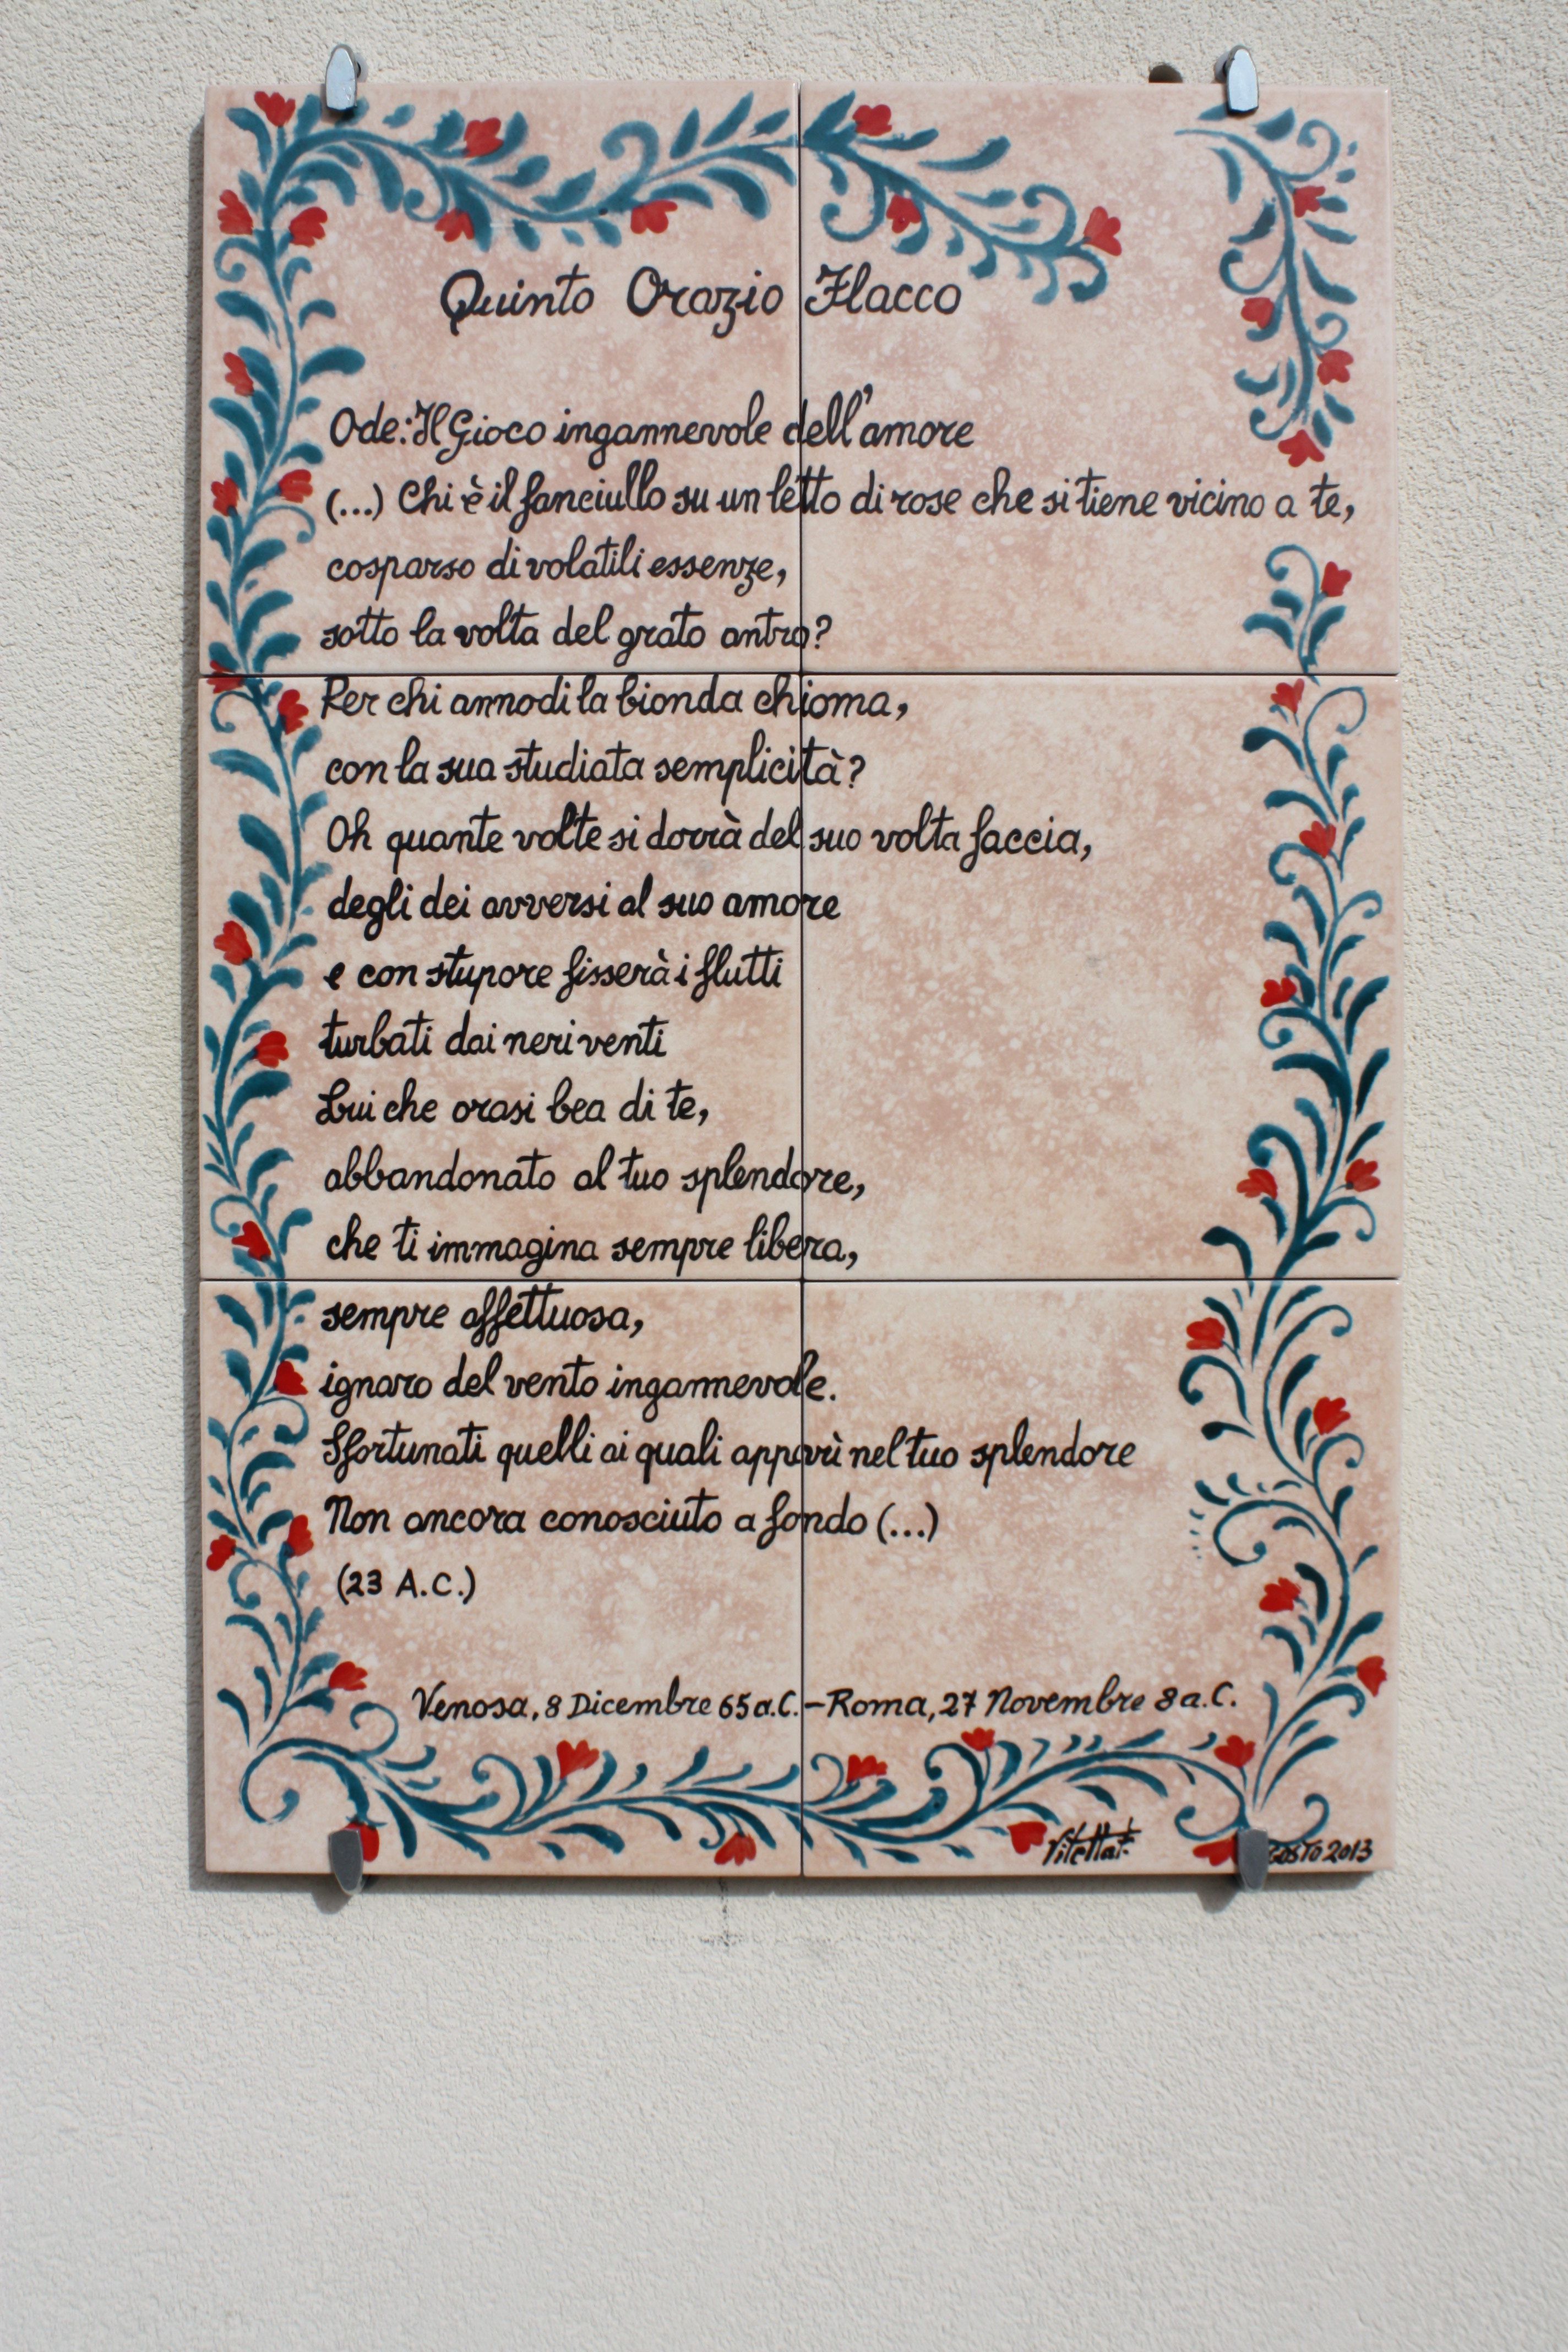 Quinto Orazio Flacco
Ode: Il Gioco ingannevole dell'amore
(...) Chi è il fanciullo su un letto di rose che si tiene vicino a te,
cosparso di volatili essenze,
sotto la volta del grato antro?
Per chi annodi la bionda chioma,
con la sua studiata semplicità?
Oh quante volte si dorrà del suo volta faccia,
degli dei avversi al suo amore
e con stupore fisserà i flutti
turbati dai neri venti
Lui che orasi bea di te,
abbandonato al tuo splendore,
che ti immagina sempre libera,
sempre affettuosa,
ignaro del vento ingannevole.
Sfortunati quelli ai quali apparì nel tuo splendore
Non ancora conosciuto a fondo (...)
(23 A.C.)
Venosa, 8 Dicembre 65 a.C. - Roma, 27 Novembre 8 a.C.
2013